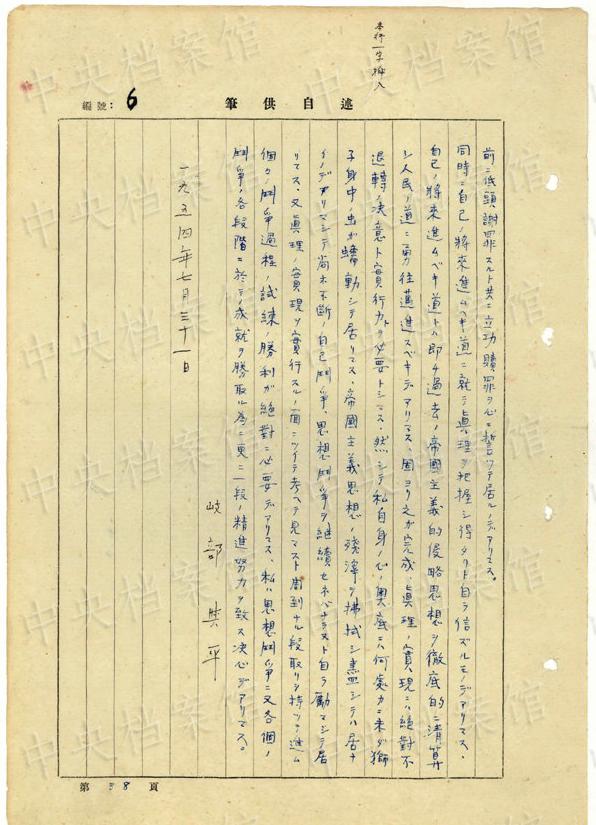 本行一字挿入
編號：6
筆供自述
前ニ低頭謝罪スルト共ニ立功贖罪ヲ心ニ誓ッテ居ルノデアリマス。
同時ニ自己ノ將來進ムベキ道ニ就テ眞理ヲ把握シ得タリト自ラ信ズルモノデアリマス、
自己ノ將來進ムベキ道トハ即チ過去ノ帝國主義的侵略思想ヲ徹底的ニ清算
シ人民ノ道ニ勇往邁進スベキデアリマス、固ヨリ之ガ完成、眞理ノ實現ニハ絶對不
退轉ノ決意ト實行力トヲ必要トシマス・然シテ私自身ノ心ノ奥底ニハ何處カニ未ダ獅
子身中ノ虫ガ蠕動シテ居リマス、帝國主義思想ノ殘滓ヲ拂拭シ盡シテハ居ナ
イノデアリマシテ尚ホ不斷ノ自己鬥爭、思想鬥爭ヲ継續セネバナラヌト自ラ勵マシテ居
リマス・又眞理ノ實現ヲ實行スル面ニツイテ考ヘテ見マスト周到ナル段取リヲ持ッテ進ム
個々ノ鬥爭過程ノ試練ノ勝利ガ絶對ニ必要デアリマス、私ハ思想鬥爭ニ又各個ノ
鬥爭ノ各段階ニ於テノ成就ヲ勝取ル為ニ更ニ一段ノ精進努力ヲ致ス決心デアリマス。
一九五四年七月三十一日
岐部與平
第 38 頁
中央档案馆